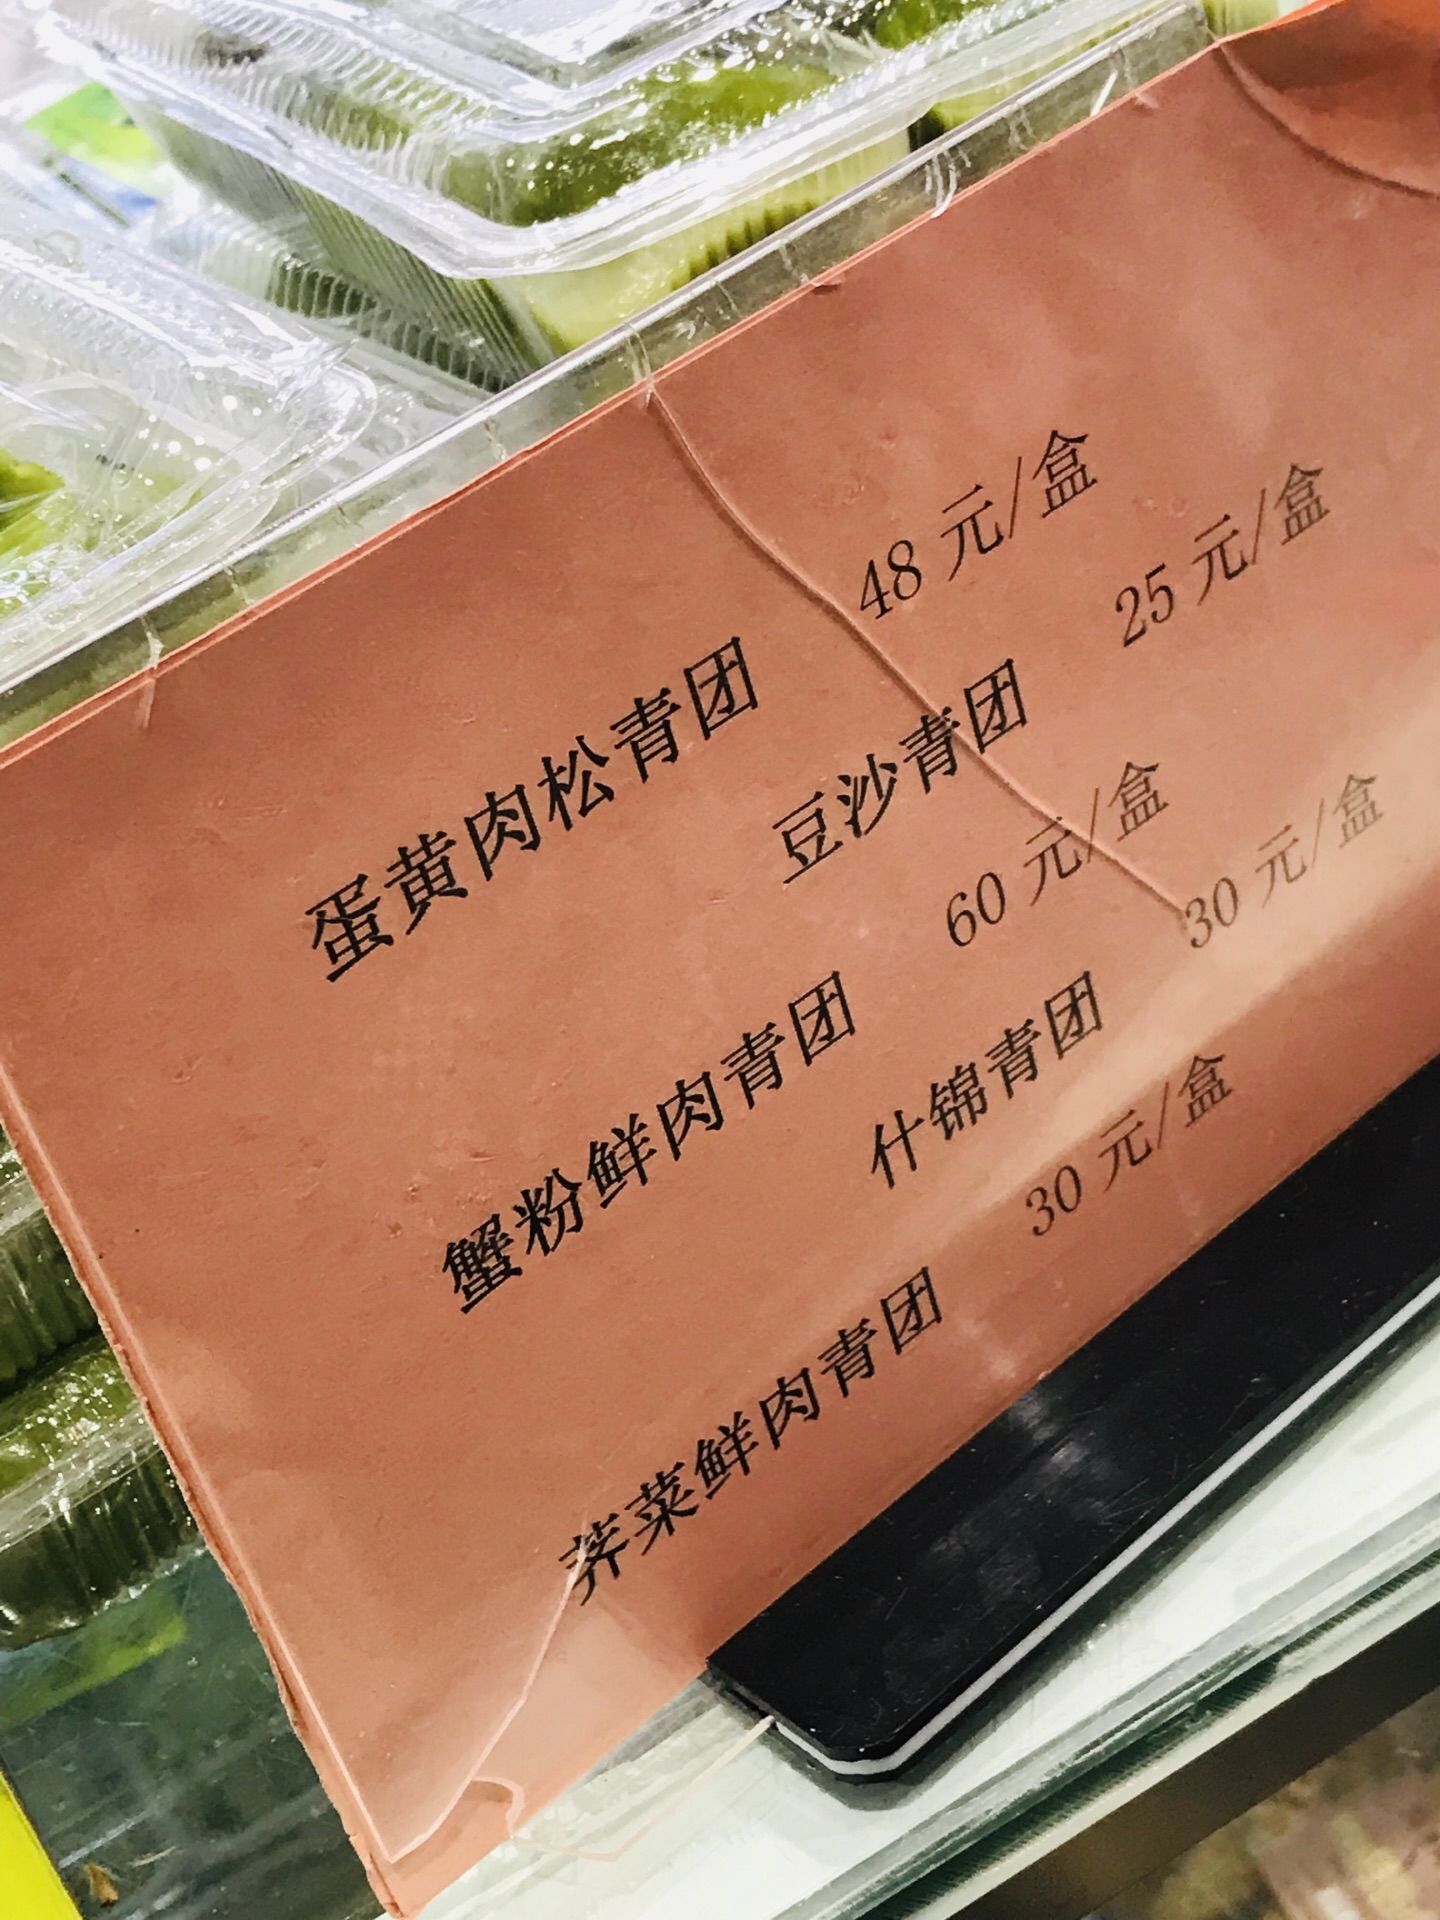 蛋黄肉松青团 48 元/盒
豆沙青团 25 元/盒
蟹粉鲜肉青团 60 元/盒
什锦青团 30 元/盒
荠菜鲜肉青团 30 元/盒